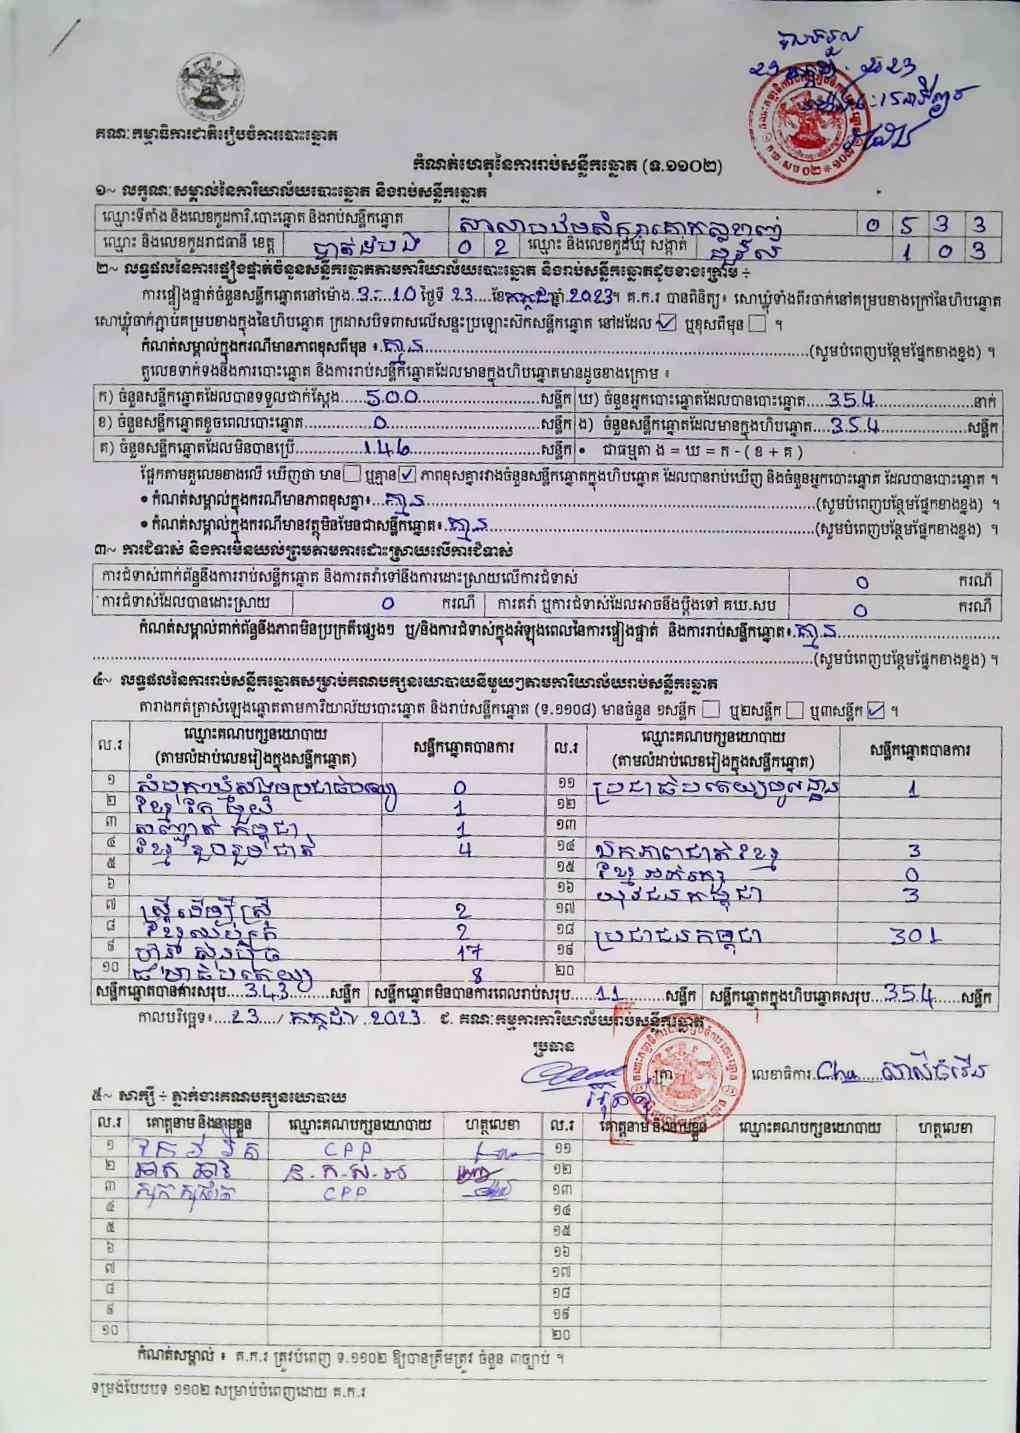 ២៣ កក្កដា ២០២៣
គណៈកម្មាធិការជាតិរៀបចំការបោះឆ្នោត
កំណត់ហេតុនៃការរាប់សន្លឹកឆ្នោត (ទ.១១០២)
១~ លក្ខណៈសម្គាល់នៃការិយាល័យបោះឆ្នោត និងរាប់សន្លឹកឆ្នោត
ឈ្មោះទីតាំង និងលេខកូដការិ.បោះឆ្នោត និងរាប់សន្លឹកឆ្នោត សាលាបឋមសិក្សា 0 5 3 3
ឈ្មោះ និងលេខកូដរាជធានី ខេត្ត បាត់ដំបង 0 2 ឈ្មោះ និងលេខកូដឃុំ សង្កាត់ 1 0 3
២~ លទ្ធផលនៃការផ្ទៀងផ្ទាត់ចំនួនសន្លឹកឆ្នោតតាមការិយាល័យបោះឆ្នោត និងរាប់សន្លឹកឆ្នោតដូចខាងក្រោម ÷
ការផ្ទៀងផ្ទាត់ចំនួនសន្លឹកឆ្នោតនៅម៉ោង 3:10 ថ្ងៃទី 23 ខែ កក្កដា ឆ្នាំ 2023។ គ.ក.រ បានពិនិត្យ៖ សោឃ្លុំទាំងពីរចាក់នៅគម្របខាងក្រៅនៃហិបឆ្នោត
សោឃ្លុំចាក់ភ្ជាប់គម្របខាងក្នុងនៃហិបឆ្នោត ក្រដាសបិទពាសលើសន្ទះប្រឡោះស៊កសន្លឹកឆ្នោត នៅដដែល ☑ ឬខុសពីមុន ☐ ។
កំណត់សម្គាល់ក្នុងករណីមានភាពខុសពីមុន ៖ គ្មាន (សូមបំពេញបន្ថែមផ្នែកខាងខ្នង) ។
តួលេខទាក់ទងនឹងការបោះឆ្នោត និងការរាប់សន្លឹកឆ្នោតដែលមានក្នុងហិបឆ្នោតមានដូចខាងក្រោម ៖
ក) ចំនួនសន្លឹកឆ្នោតដែលបានទទួលជាក់ស្តែង 500 សន្លឹក ឃ) ចំនួនអ្នកបោះឆ្នោតដែលបានបោះឆ្នោត 354 នាក់
ខ) ចំនួនសន្លឹកឆ្នោតខូចពេលបោះឆ្នោត 0 សន្លឹក ង) ចំនួនសន្លឹកឆ្នោតដែលមានក្នុងហិបឆ្នោត 354 សន្លឹក
គ) ចំនួនសន្លឹកឆ្នោតដែលមិនបានប្រើ 146 សន្លឹក • ជាធម្មតា ង = ឃ = ក - ( ខ + គ )
ផ្អែកតាមតួលេខខាងលើ ឃើញថា មាន ☐ ឬគ្មាន ☑ ភាពខុសគ្នារវាងចំនួនសន្លឹកឆ្នោតក្នុងហិបឆ្នោត ដែលបានរាប់ឃើញ និងចំនួនអ្នកបោះឆ្នោត ដែលបានបោះឆ្នោត ។
• កំណត់សម្គាល់ក្នុងករណីមានភាពខុសគ្នា៖ គ្មាន (សូមបំពេញបន្ថែមផ្នែកខាងខ្នង) ។
• កំណត់សម្គាល់ក្នុងករណីមានវត្ថុមិនមែនជាសន្លឹកឆ្នោត៖ គ្មាន (សូមបំពេញបន្ថែមផ្នែកខាងខ្នង) ។
៣~ ការជំទាស់ និងការមិនយល់ព្រមតាមការដោះស្រាយលើការជំទាស់
ការជំទាស់ពាក់ព័ន្ធនឹងការរាប់សន្លឹកឆ្នោត និងការតវ៉ាទៅនឹងការដោះស្រាយលើការជំទាស់ 0 ករណី
ការជំទាស់ដែលបានដោះស្រាយ 0 ករណី ការតវ៉ា ឬការជំទាស់ដែលអាចនឹងប្តឹងទៅ គឃ.សប 0 ករណី
កំណត់សម្គាល់ពាក់ព័ន្ធនឹងភាពមិនប្រក្រតីផ្សេងៗ ឬ/និងការជំទាស់ក្នុងអំឡុងពេលនៃការផ្ទៀងផ្ទាត់ និងការរាប់សន្លឹកឆ្នោត៖ គ្មាន
(សូមបំពេញបន្ថែមផ្នែកខាងខ្នង) ។
៤~ លទ្ធផលនៃការរាប់សន្លឹកឆ្នោតសម្រាប់គណបក្សនយោបាយនីមួយៗតាមការិយាល័យរាប់សន្លឹកឆ្នោត
តារាងកត់ត្រាសំឡេងឆ្នោតតាមការិយាល័យបោះឆ្នោត និងរាប់សន្លឹកឆ្នោត (ទ.១១០៨) មានចំនួន ១សន្លឹក ☐ ឬ២សន្លឹក ☐ ឬ៣សន្លឹក ☑ ។
ល.រ ឈ្មោះគណបក្សនយោបាយ (តាមលំដាប់លេខរៀងក្នុងសន្លឹកឆ្នោត) សន្លឹកឆ្នោតបានការ ល.រ ឈ្មោះគណបក្សនយោបាយ (តាមលំដាប់លេខរៀងក្នុងសន្លឹកឆ្នោត) សន្លឹកឆ្នោតបានការ
១ សំបុកឃ្មុំសង្គមប្រជាធិបតេយ្យ 0 ១១ ប្រជាធិបតេយ្យមូលដ្ឋាន 1
២ ខ្មែរ តែ មួយ 1 ១២
៣ សញ្ជាតិ កម្ពុជា 1 ១៣
៤ ខ្មែរ រួបរួម ជាតិ 4 ១៤ ឯកភាពជាតិខ្មែរ 3
៥ ១៥ ខ្មែរ អភិរក្ស 0
៦ ១៦ យុវជនកម្ពុជា 3
៧ ស្ត្រីដើម្បីស្ត្រី 2 ១៧
៨ 2 ១៨ ប្រជាជនកម្ពុជា 301
៩ ហ៊្វុនស៊ិនប៉ិច 17 ១៩
១០ ធម្មាធិបតេយ្យ 8 ២០
សន្លឹកឆ្នោតបានការសរុប 343 សន្លឹក សន្លឹកឆ្នោតមិនបានការពេលរាប់សរុប 11 សន្លឹក សន្លឹកឆ្នោតក្នុងហិបឆ្នោតសរុប 354 សន្លឹក
កាលបរិច្ឆេទ៖ 23 / កក្កដា / 2023 ជ. គណៈកម្មការការិយាល័យរាប់សន្លឹកឆ្នោត
ប្រធាន
ត្រា លេខាធិការ
៥~ សាក្សី ÷ ភ្នាក់ងារគណបក្សនយោបាយ
ល.រ គោត្តនាម និងនាមខ្លួន ឈ្មោះគណបក្សនយោបាយ ហត្ថលេខា ល.រ គោត្តនាម និងនាមខ្លួន ឈ្មោះគណបក្សនយោបាយ ហត្ថលេខា
១ CPP ១១
២ ១២
៣ CPP ១៣
៤ ១៤
៥ ១៥
៦ ១៦
៧ ១៧
៨ ១៨
៩ ១៩
១០ ២០
កំណត់សម្គាល់ ៖ គ.ក.រ ត្រូវបំពេញ ទ.១១០២ ឱ្យបានត្រឹមត្រូវ ចំនួន ៣ច្បាប់ ។
ទម្រង់បែបបទ ១១០២ សម្រាប់បំពេញដោយ គ.ក.រ